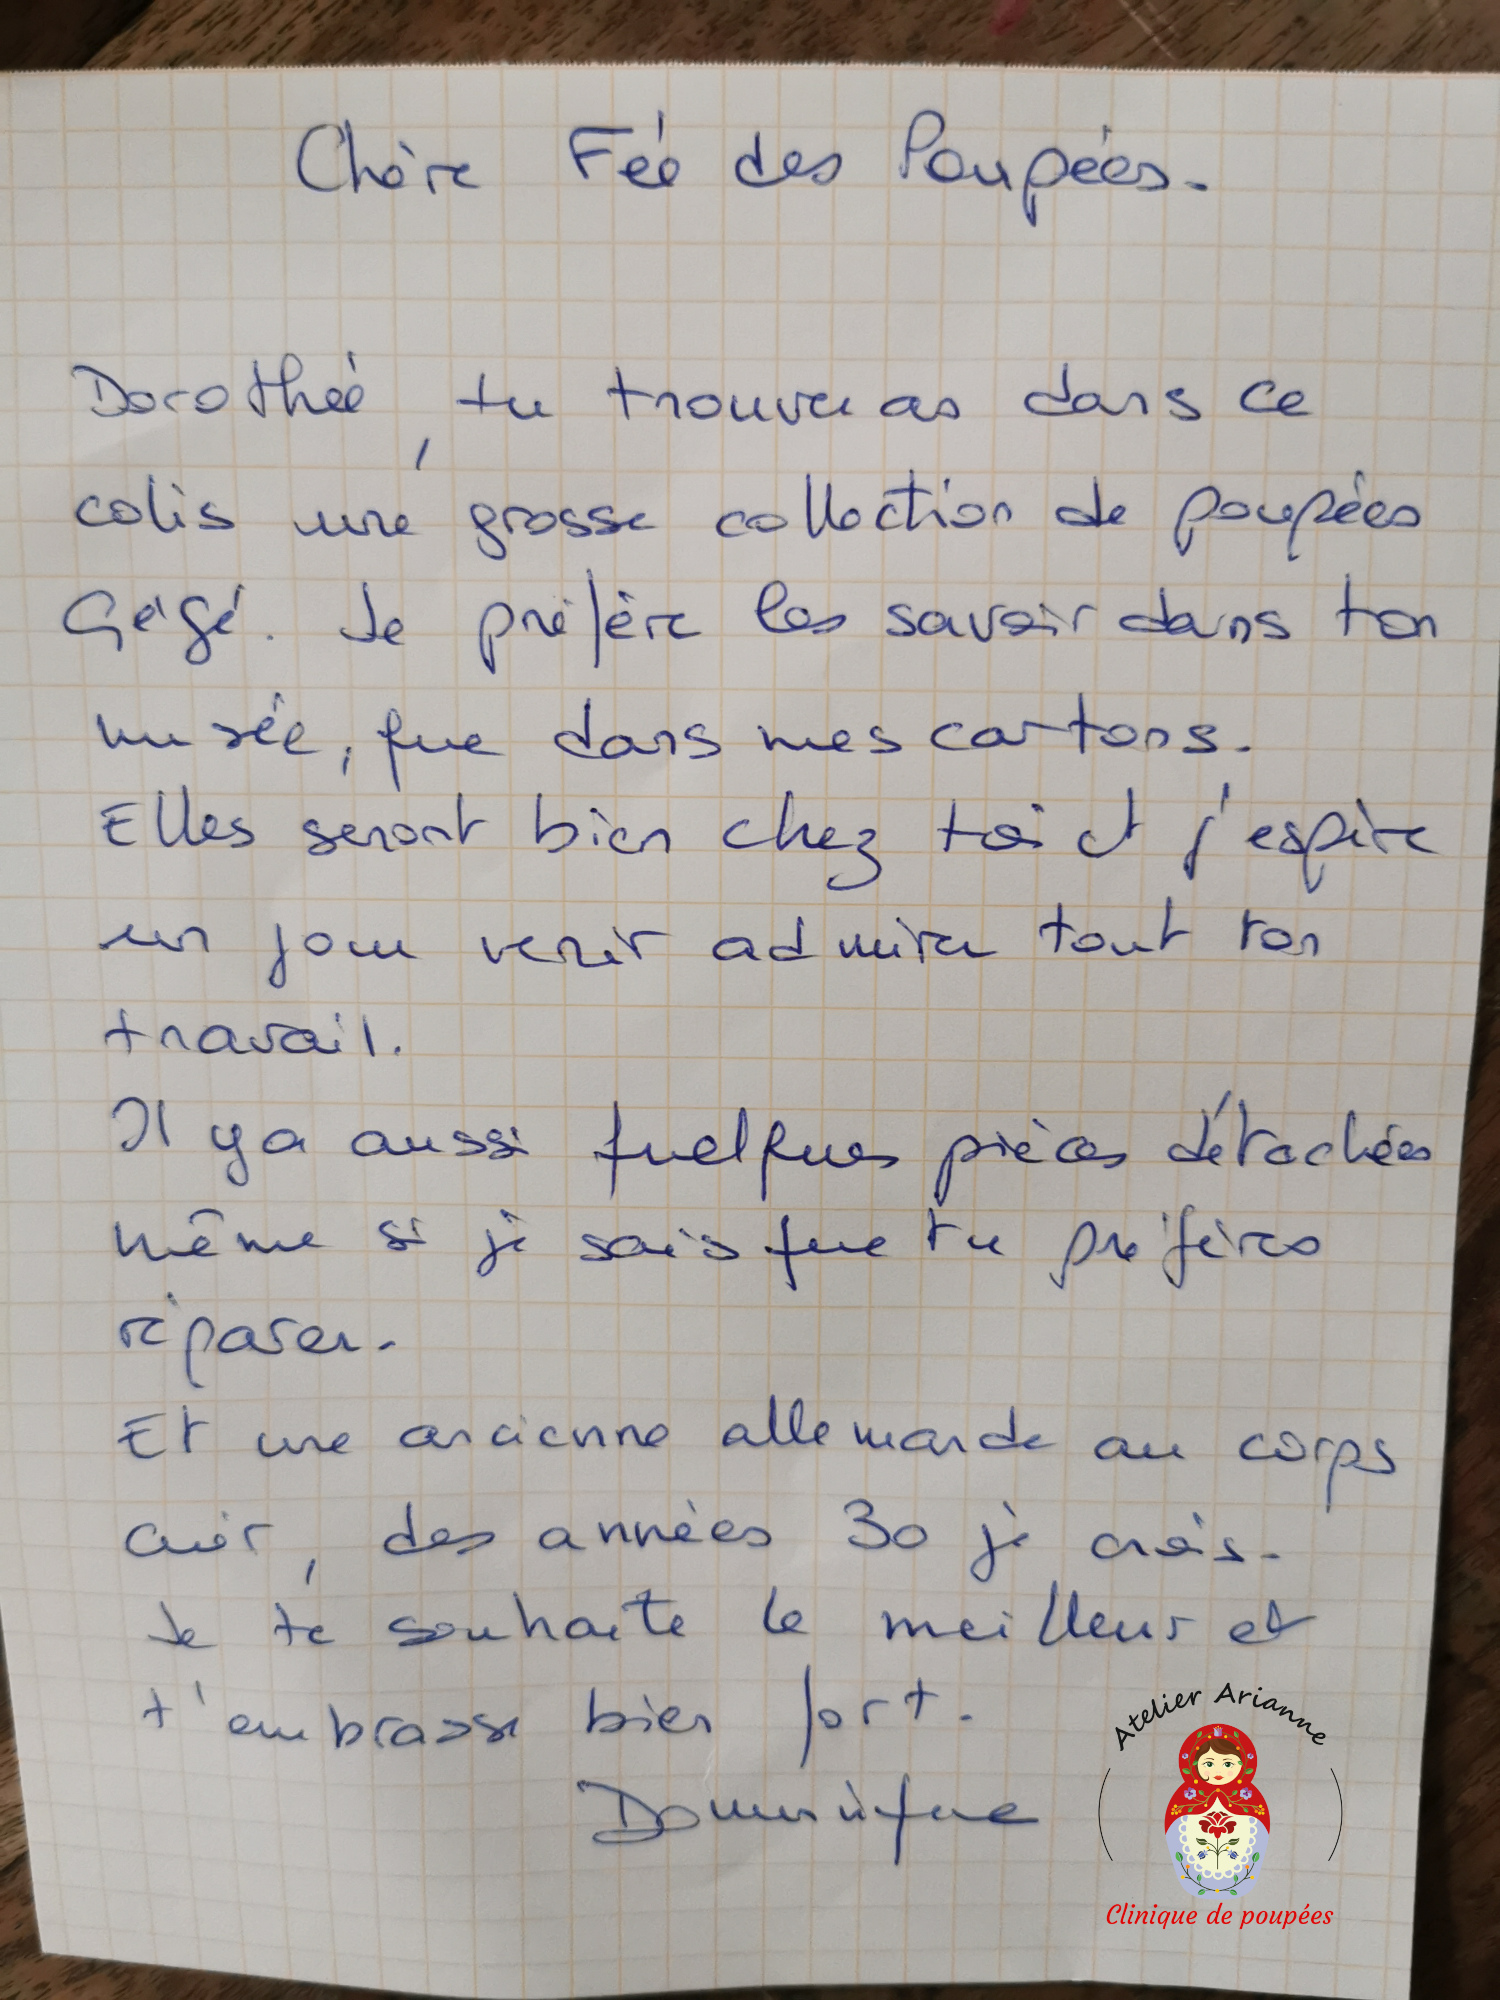 Chère Fée des Poupées.
Dorothée, tu trouveras dans ce
colis une grosse collection de poupées
Gégé. Je préfère les savoir dans ton
musée, que dans mes cartons.
Elles seront bien chez toi et j'espère
un jour venir admirer tout ton
travail.
Il y a aussi quelques pièces détachées
même si je sais que tu préfères
réparer.
Et une ancienne allemande au corps
cuir, des années 30 je crois.
Je te souhaite le meilleur et
t'embrasse bien fort.
Dominique
Atelier Arianne
Clinique de poupées